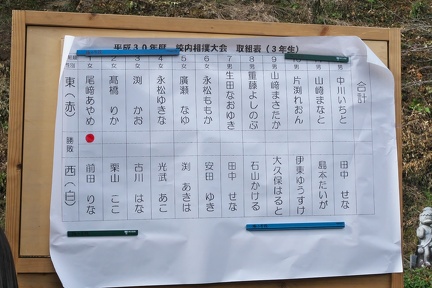 平成30年度 校内相撲大会 取組表（3年生）
東（赤） 勝敗 西（白）
1 女 尾﨑あやめ 前田 りな
2 女 髙橋 りか 栗山 ここ
3 女 渕 かお 古川 はな
4 女 永松ゆきな 光武 あこ
5 女 廣瀬 なゆ 渕 あきは
6 女 永松ももか 安田 ゆき
7 男 生田なおゆき 田中 せな
8 男 重藤よしのぶ 石山かける
9 男 山﨑まさたか 大久保はると
男 片渕れおん 伊東ゆうすけ
男 山﨑まなと 島本たいが
男 中川いちと 田中 せな
合計